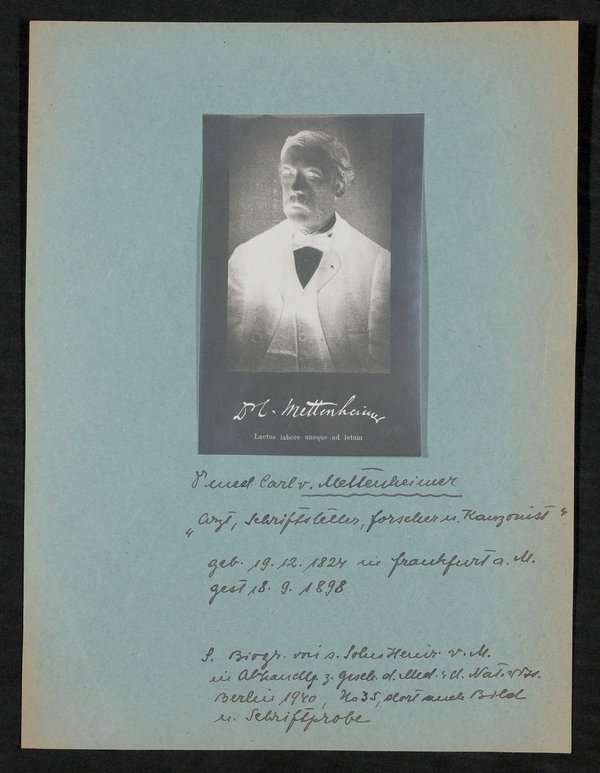 Dr C. Mettenheimer
Laetus labore usque ad letum
Dr med Carl v. Mettenheimer
„Arzt, Schriftsteller, Forscher u.
geb. 19. 12. 1824 in Frankfurt a. M.
gest 18. 9. 1898
S. Biogr. von s. Sohn Heinr. v. M.
in Abhandlg. z. Gesch. d. Med. u. d. Nat. Wiss.
Berlin 1940, No 35, dort auch Bild
u. Schriftprobe